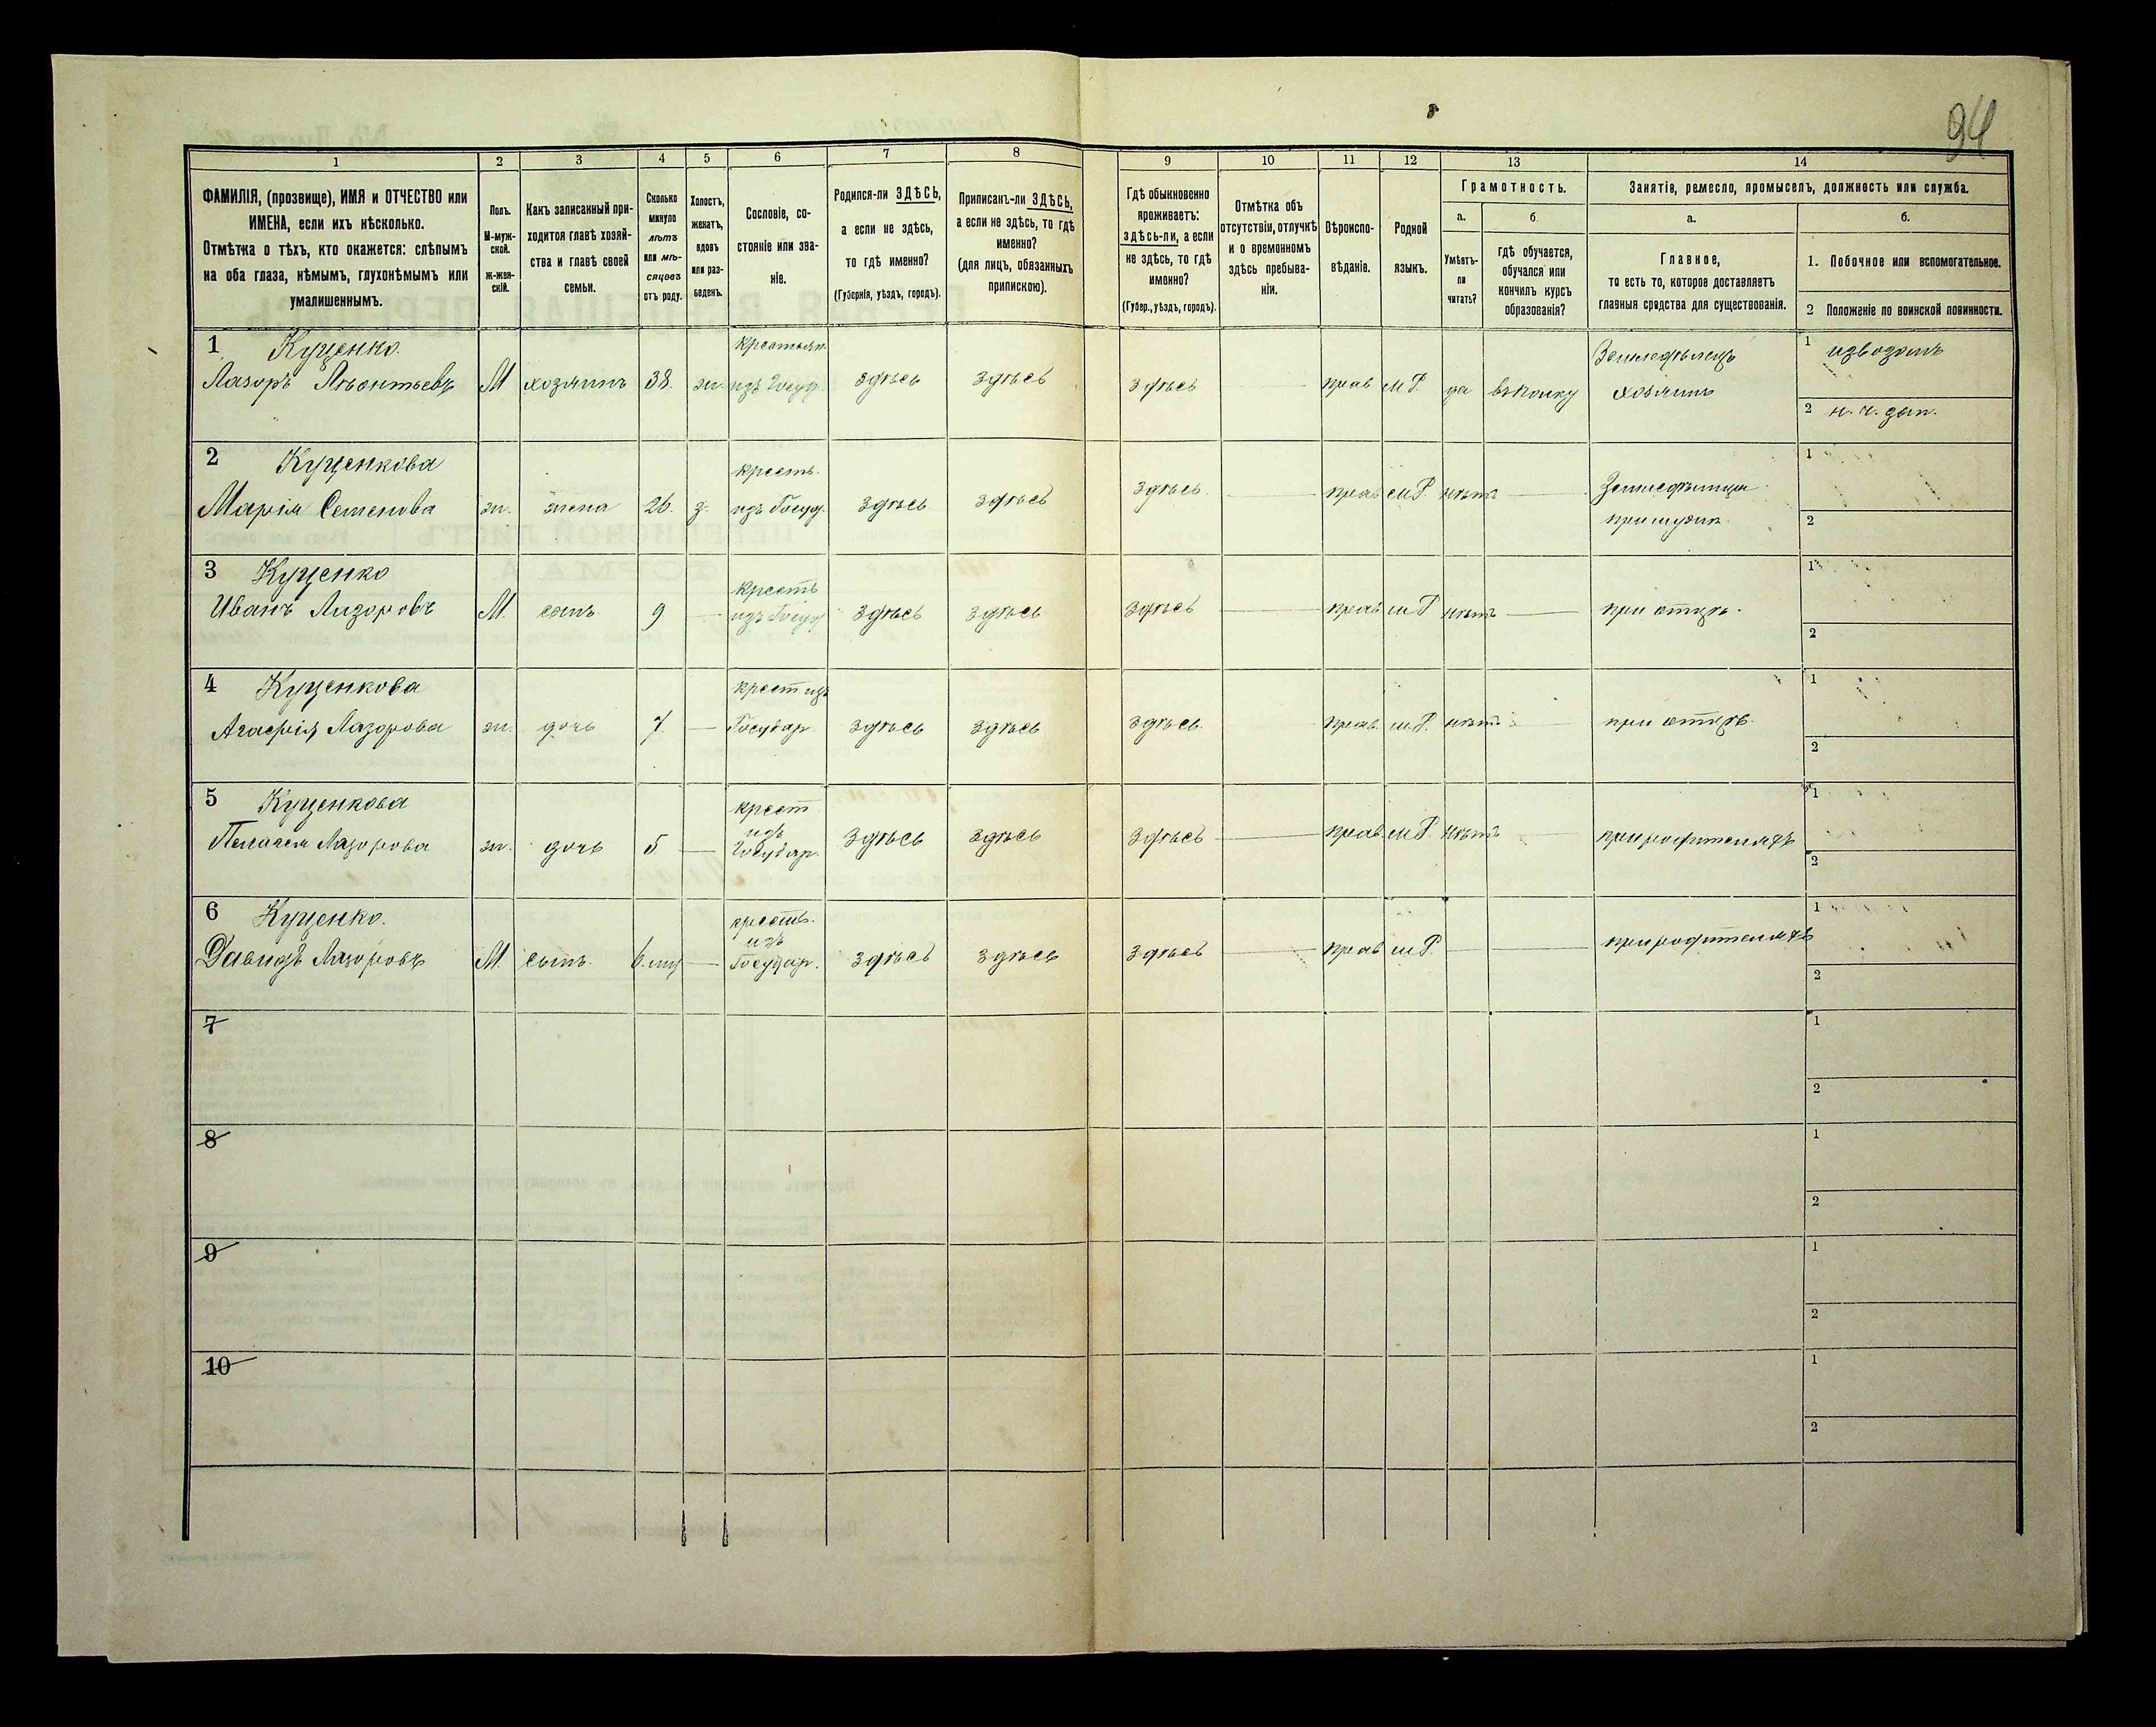 94
1 2 3 4 5 6 7 8 9 10 11 12 13 14
ФАМИЛІЯ, (прозвище), ИМЯ и ОТЧЕСТВО или
ИМЕНА, если ихъ нѣсколько.
Отмѣтка о тѣхъ, кто окажется: слѣпымъ
на оба глаза, нѣмымъ, глухонѣмымъ или
умалишеннымъ.
Полъ.
М-муж-
ской.
Ж-жен-
скій.
Какъ записанный при-
ходится главѣ хозяй-
ства и главѣ своей
семьи.
Сколько
минуло
лѣтъ
или мѣ-
сяцевъ
отъ роду.
Холостъ,
женатъ,
вдовъ
или раз-
веденъ.
Сословіе, со-
стояніе или зва-
ніе.
Родился-ли ЗДѢСЬ,
а если не здѣсь,
то гдѣ именно?
(Губернія, уѣздъ, городъ).
Приписанъ-ли ЗДѢСЬ,
а если не здѣсь, то гдѣ
именно?
(для лицъ, обязанныхъ
припискою).
Гдѣ обыкновенно
проживаетъ:
здѣсь-ли, а если
не здѣсь, то гдѣ
именно?
(Губер., уѣздъ, городъ).
Отмѣтка объ
отсутствіи, отлучкѣ
и о временномъ
здѣсь пребыва-
ніи.
Вѣроиспо-
вѣданіе.
Родной
языкъ.
Грамотность.
а.
Умѣетъ-
ли
читать?
б.
гдѣ обучается,
обучался или
кончилъ курсъ
образованія?
Занятіе, ремесло, промыселъ, должность или служба.
а.
Главное,
то есть то, которое доставляетъ
главныя средства для существованія.
б.
1. Побочное или вспомогательное.
2 Положеніе по воинской повинности.
1 Куценко. крестьян. Земледѣлецъ 1 извозомъ
Лазоръ Леонтьевъ М хозяинъ 38. ж. изъ Госуд. здѣсь здѣсь здѣсь — прав М.Р. да хозяинъ
2
2 Куценкова кресть. 1
Марія Семенова ж. жена 26. з. изъ Госуд. здѣсь здѣсь здѣсь — прав М.Р. нѣтъ —
2
3 Куценко кресть 1
Иванъ Лазоровъ М. сынъ 9 — изъ Госуд здѣсь здѣсь здѣсь — прав М.Р нѣтъ — при отцѣ.
2
4 Куценкова крест изъ 1
Агафія Лазорова ж. дочь 7. — Государ. здѣсь здѣсь здѣсь — прав. М.Р. нѣтъ — при отцѣ.
2
5 Куценкова крест 1
изъ
Пелагея Лазорова ж. дочь 5 — Государ. здѣсь здѣсь здѣсь — прав М.Р. нѣтъ — при родителяхъ
2
6 Куценко. кресть. 1
изъ
Давидъ Лазоровъ М. сынъ. 6. мц — Государ. здѣсь здѣсь здѣсь — прав М.Р. — — при родителяхъ
2
7 1
2
8 1
2
9 1
2
10 1
2